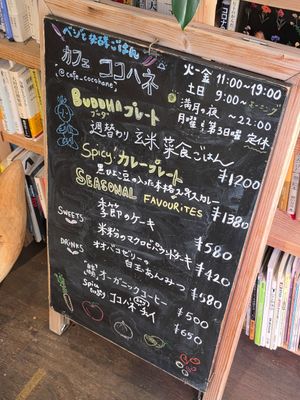 ベジと発酵ごはん
カフェ ココハネ
@cafe_cocohane
火-金 11:00〜19:00
土日 9:00〜 モーニング
満月の夜 〜22:00
月曜&第3日曜 定休
BUDDHAプレート
ブッダ
週替わり 玄米 菜食ごはん
¥1200
Spicy! カレープレート
黒ひよこ豆の入った本格スパイスカレー
¥1380
SEASONAL FAVOURITES
SWEETS
季節のケーキ
¥580
米粉のマクロビパウンドケーキ
¥420
オオバコゼリーの
白玉あんみつ
¥680
DRINKS
オーガニックコーヒー
¥500
Spice
ココハネチャイ
¥650